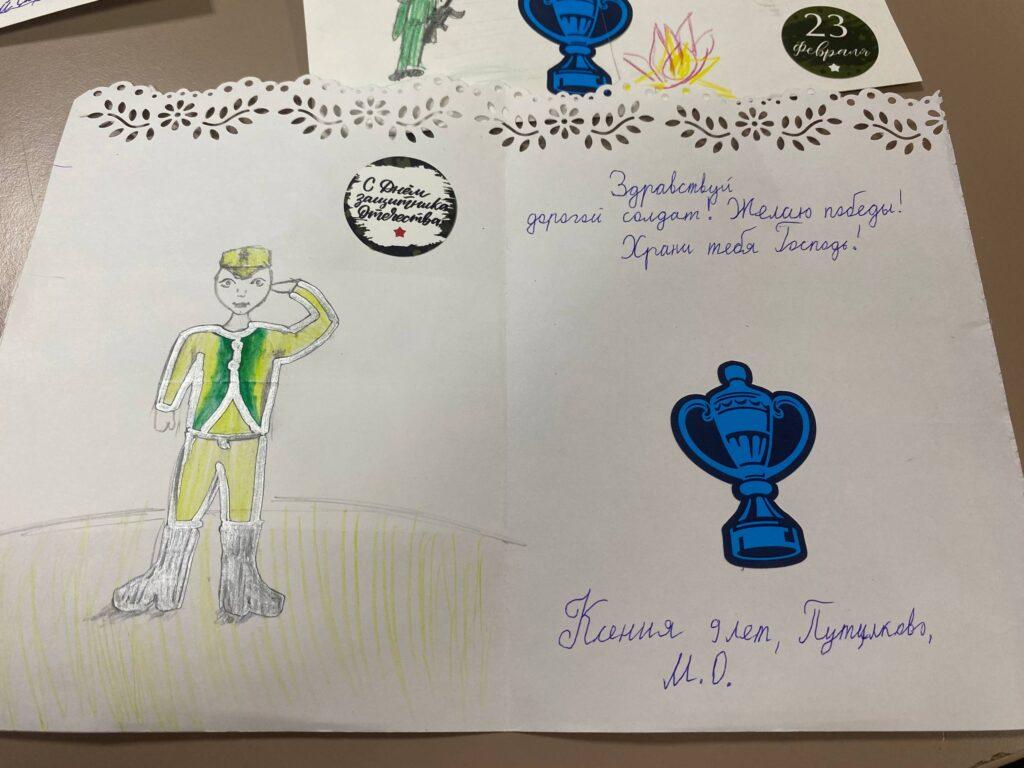 23
Февраля
С Днём
защитника
Отечества
Здравствуй
дорогой солдат! Желаю победы!
Храни тебя Господь!
Ксения 9 лет, Путилково,
М.О.